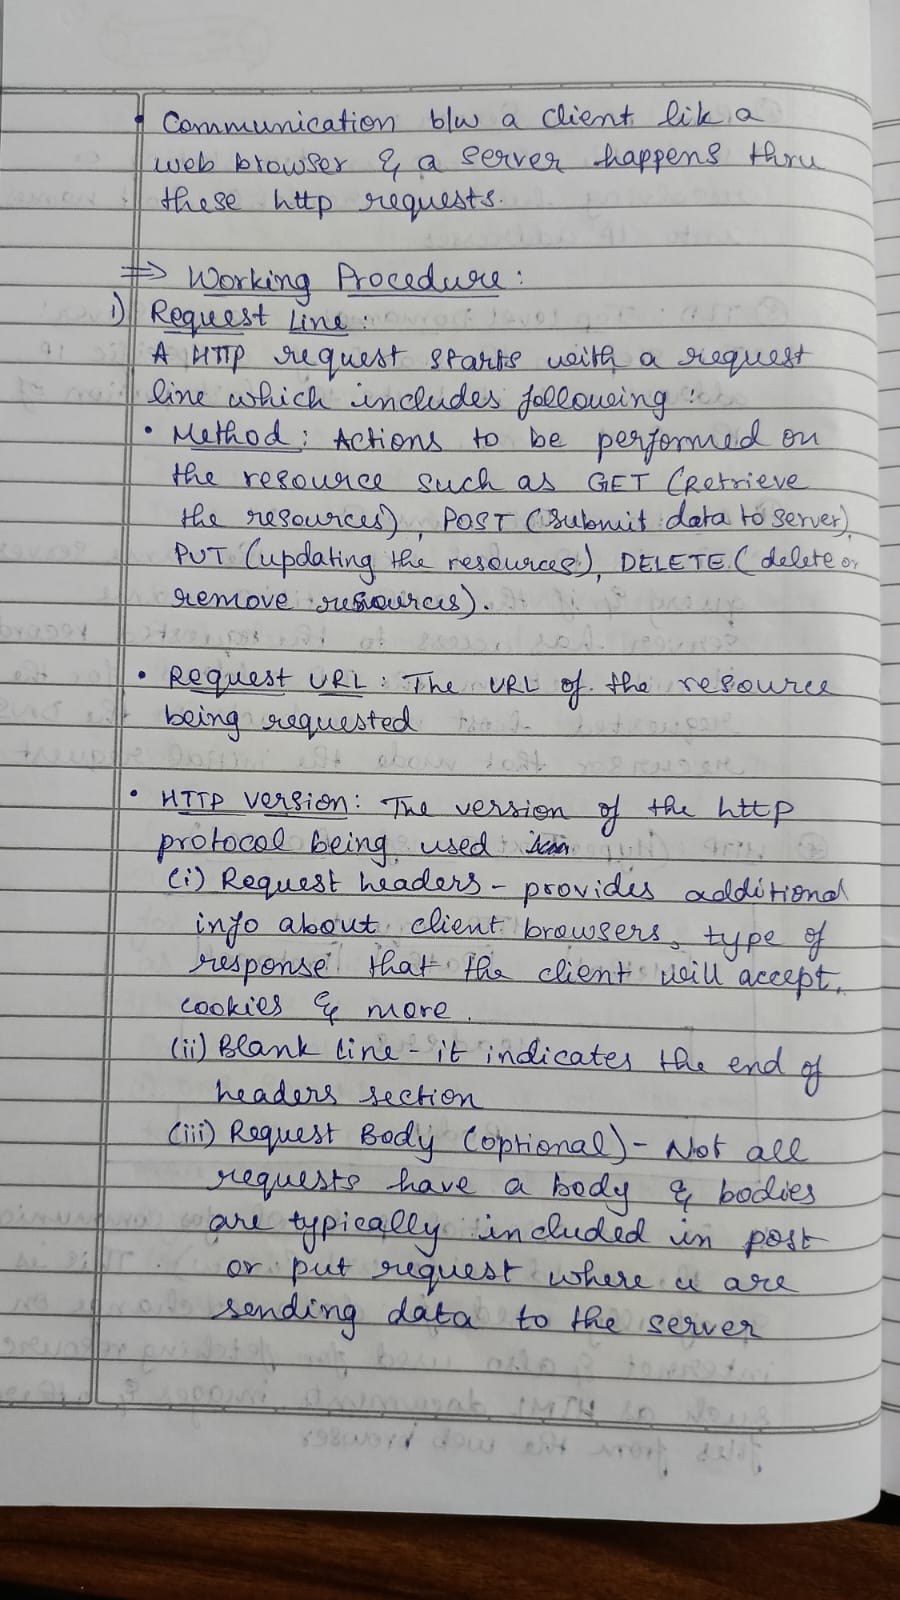 • Communication b/w a client lik a
web browser & a server happens thru
these http requests.
⇒ Working Procedure:
i) Request Line:
A HTTP request starts with a request
line which includes following:
• Method: Actions to be performed on
the resource such as GET (Retrieve
the resources), POST (Submit data to server),
PUT (updating the resources), DELETE (delete or
remove resources).
• Request URL: The URL of the resource
being requested
• HTTP Version: The version of the http
protocol being used
(i) Request headers - provides additional
info about client browsers, type of
response that the client will accept,
cookies & more.
(ii) Blank line - it indicates the end of
headers section
(iii) Request Body (optional) - Not all
requests have a body & bodies
are typically included in post
or put request where u are
sending data to the server